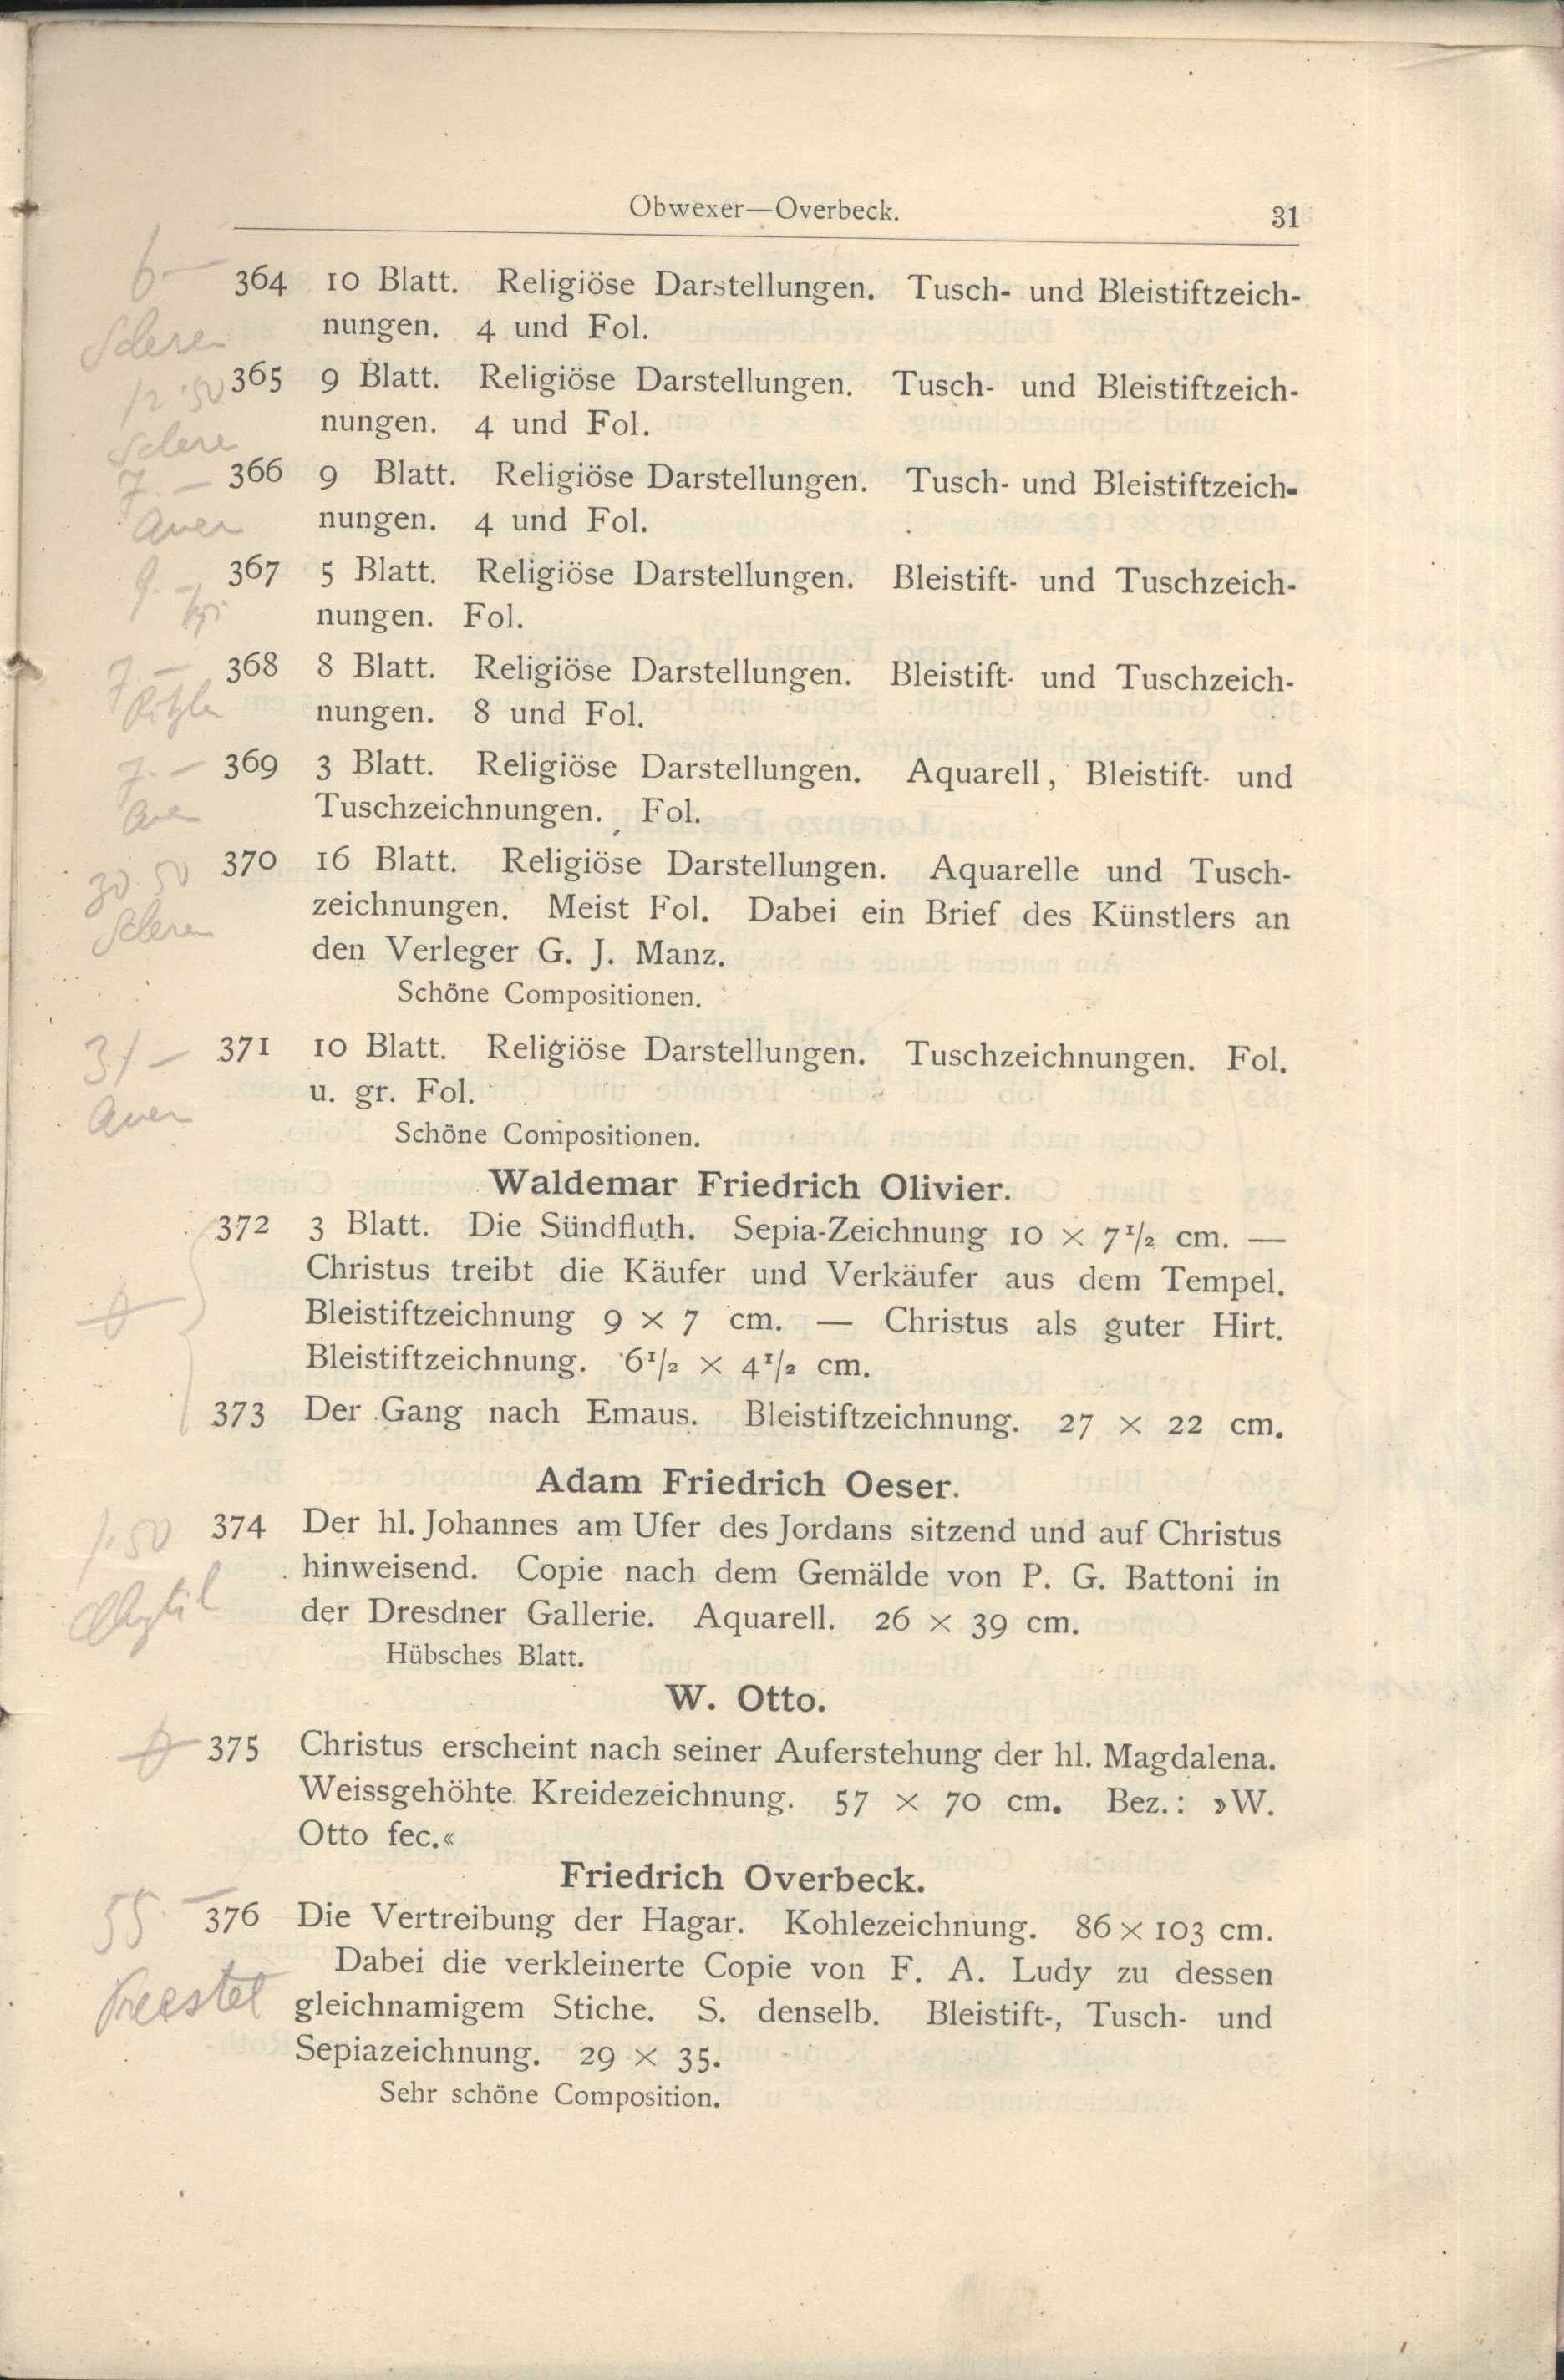 Obwexer—Overbeck. 31
6—
364 10 Blatt. Religiöse Darstellungen. Tusch- und Bleistiftzeich-
nungen. 4 und Fol.
12.50
365 9 Blatt. Religiöse Darstellungen. Tusch- und Bleistiftzeich-
nungen. 4 und Fol.
7.—
366 9 Blatt. Religiöse Darstellungen. Tusch- und Bleistiftzeich-
nungen. 4 und Fol.
Auer
9.—
367 5 Blatt. Religiöse Darstellungen. Bleistift- und Tuschzeich-
nungen. Fol.
7—
368 8 Blatt. Religiöse Darstellungen. Bleistift- und Tuschzeich-
nungen. 8 und Fol.
7.—
369 3 Blatt. Religiöse Darstellungen. Aquarell, Bleistift- und
Tuschzeichnungen. Fol.
Auer
30.50
370 16 Blatt. Religiöse Darstellungen. Aquarelle und Tusch-
zeichnungen. Meist Fol. Dabei ein Brief des Künstlers an
den Verleger G. J. Manz.
Schöne Compositionen.
31—
371 10 Blatt. Religiöse Darstellungen. Tuschzeichnungen. Fol.
u. gr. Fol.
Auer
Schöne Compositionen.
Waldemar Friedrich Olivier.
372 3 Blatt. Die Sündfluth. Sepia-Zeichnung 10 × 7½ cm. —
Christus treibt die Käufer und Verkäufer aus dem Tempel.
Bleistiftzeichnung 9 × 7 cm. — Christus als guter Hirt.
Bleistiftzeichnung. 6½ × 4½ cm.
373 Der Gang nach Emaus. Bleistiftzeichnung. 27 × 22 cm.
Adam Friedrich Oeser.
1.50
374 Der hl. Johannes am Ufer des Jordans sitzend und auf Christus
hinweisend. Copie nach dem Gemälde von P. G. Battoni in
der Dresdner Gallerie. Aquarell. 26 × 39 cm.
Hübsches Blatt.
W. Otto.
375 Christus erscheint nach seiner Auferstehung der hl. Magdalena.
Weissgehöhte Kreidezeichnung. 57 × 70 cm. Bez.: »W.
Otto fec.«
Friedrich Overbeck.
55.—
376 Die Vertreibung der Hagar. Kohlezeichnung. 86 × 103 cm.
Dabei die verkleinerte Copie von F. A. Ludy zu dessen
gleichnamigem Stiche. S. denselb. Bleistift-, Tusch- und
Sepiazeichnung. 29 × 35.
Sehr schöne Composition.